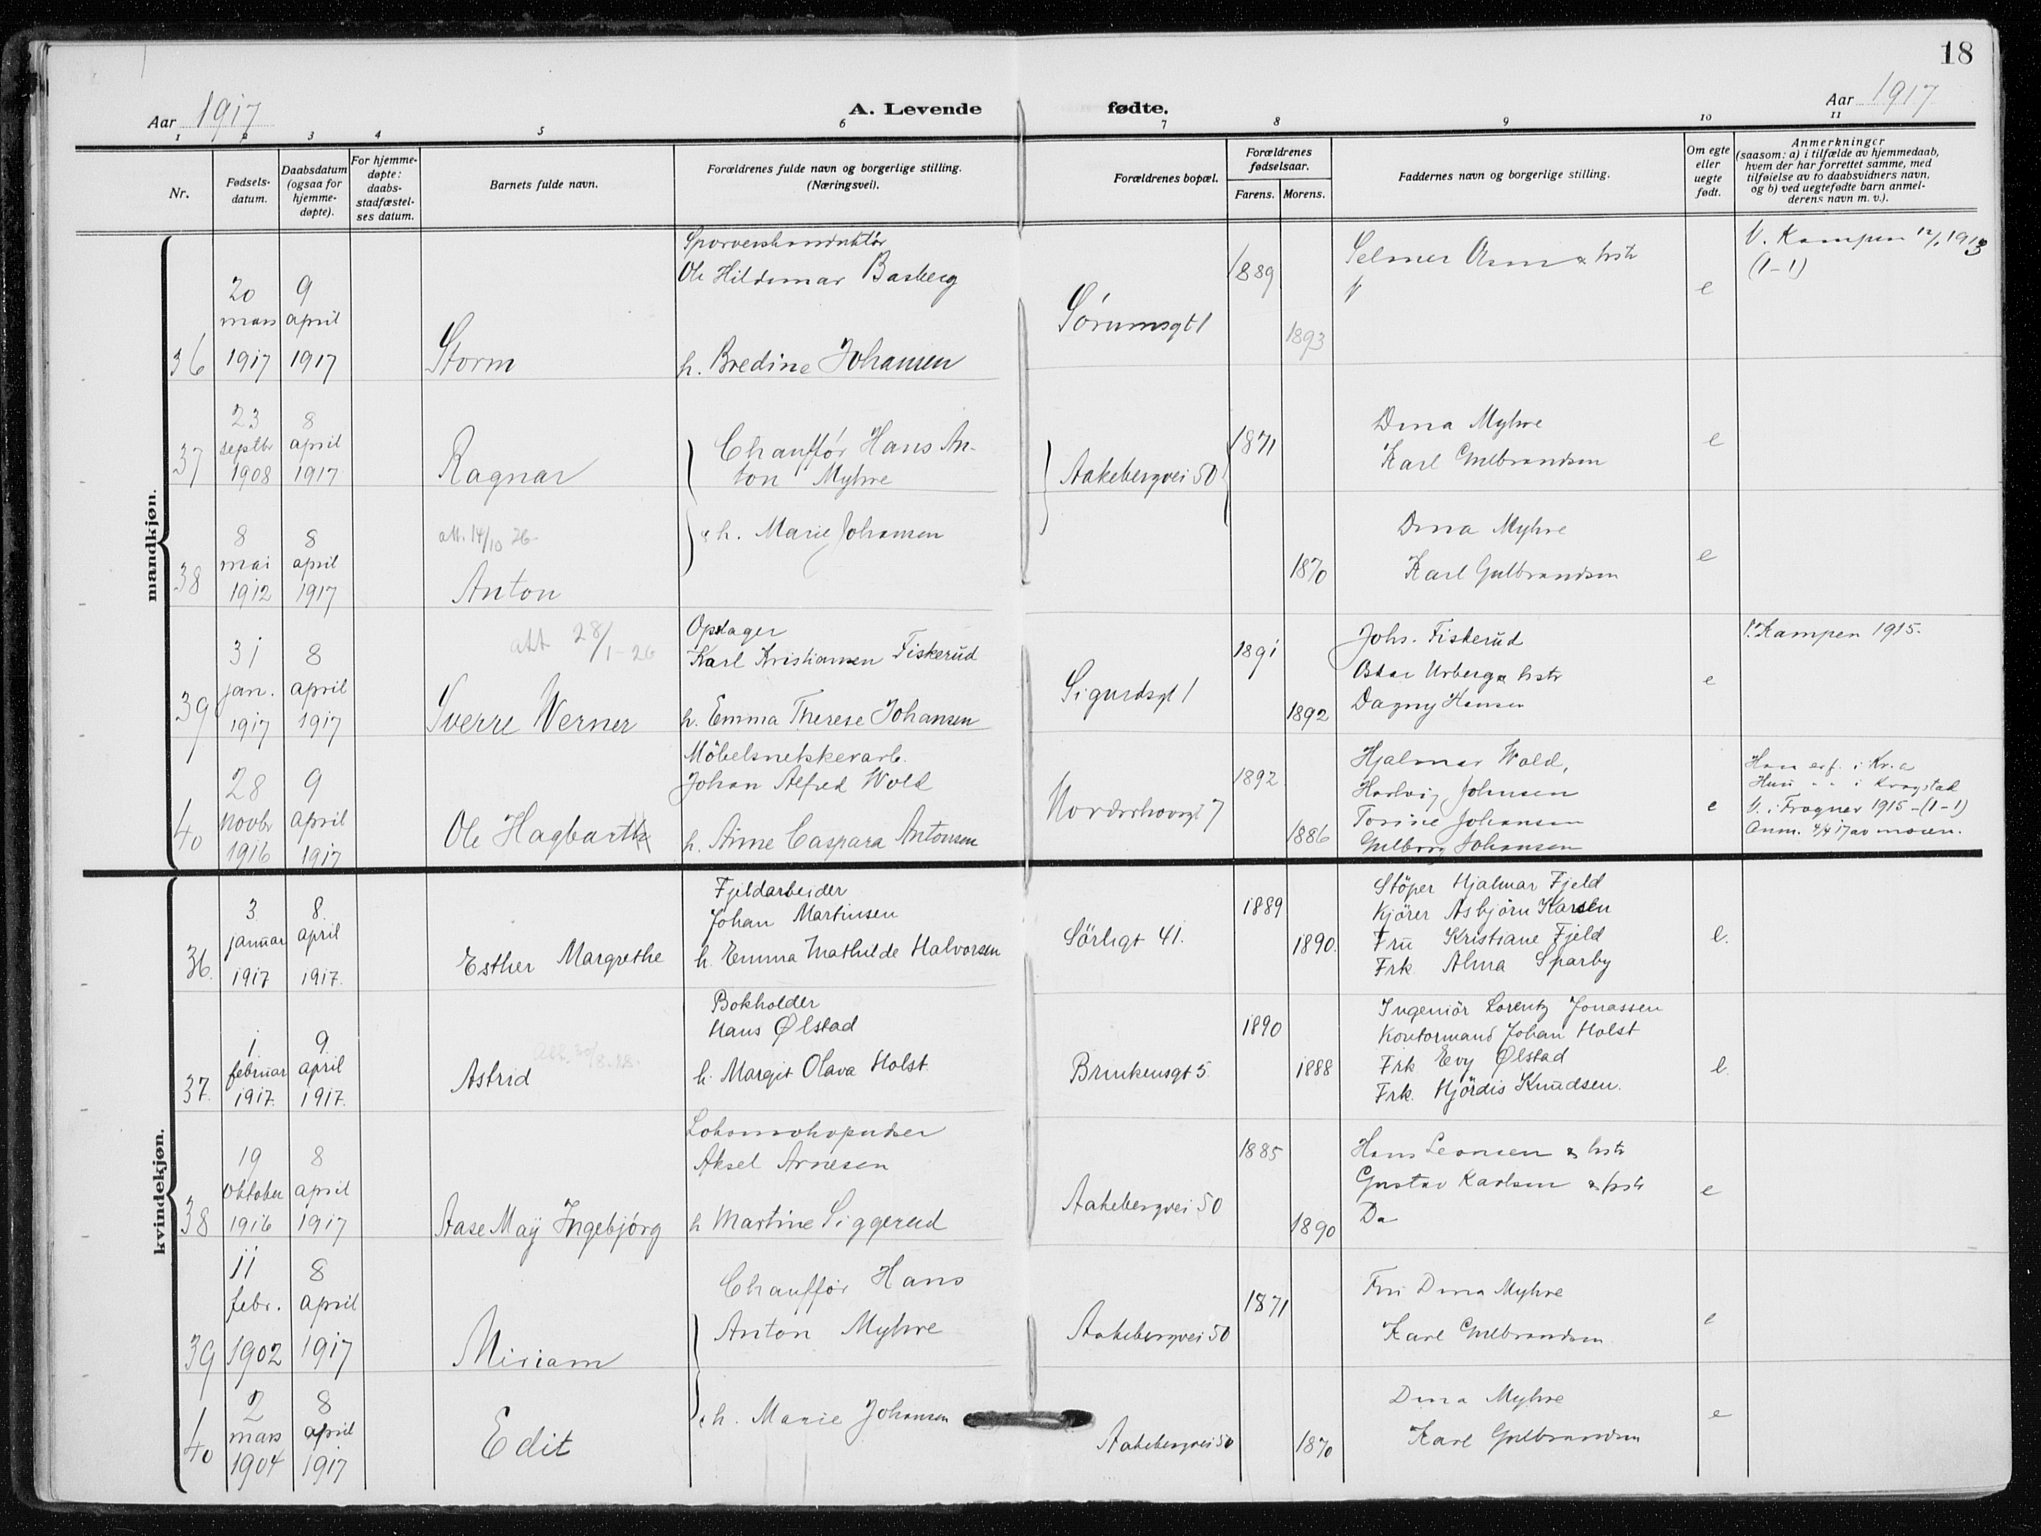 18
Aar 1917
A. Levende fødte.
Aar 1917
1 2 3 4 5 6 7 8 9 10 11
Nr.
Fødsels-
datum.
Daabsdatum
(ogsaa for
hjemme-
døpte).
For hjemme-
døpte:
daabs-
stadfæstel-
ses datum.
Barnets fulde navn.
Forældrenes fulde navn og borgerlige stilling.
(Næringsvei).
Forældrenes bopæl.
Forældrenes
fødselsaar.
Farens. Morens.
Faddernes navn og borgerlige stilling.
Om egte
eller
uegte
født.
Anmerkninger
(saasom: a) i tilfælde av hjemmedaab,
hvem der har forrettet samme, med
tilføielse av to daabsvidners navn,
og b) ved uegtefødte barn anmel-
derens navn m. v.).
mandkjøn.
36
20
mars
1917
9
april
1917
Storm
Sporveiskonduktør
Ole Hildemar Basberg
h. Bredine Johansen
Sørumsgt 1
1889
1893
Selmer & hstr
e
V. Kampen 12/1 1913
(1-1)
37
23
septbr
1908
8
april
1917
Ragnar
Chauffør Hans An-
ton Myhre
Aakebergvei 50
1871
Dina Myhre
Karl Gulbrandsen
e
38
8
mai
1912
8
april
1917
att. 14/10 26
Anton
h. Marie Johansen
1870
Dina Myhre
Karl Gulbrandsen
e
39
31
jan.
1917
8
april
1917
att 28/1-26
Sverre Werner
Opslager
Karl Kristiansen Fiskerud
h. Emma Therese Johansen
Sigurdsgt 1
1891
1892
Johs. Fiskerud
Oskar Urberg & hstr
Dagny Hansen
e
V. Kampen 1915.
40
28
novbr
1916
9
april
1917
Ole Hagbarth
Möbelsnekkerarb.
Johan Alfred Wold
h. Anne Caspara Antonsen
Norderhovsgt 7
1892
1886
Hjalmar Wold,
Hartvig Johnsen
Torine Johansen
Gulborg Johansen
e
Han i Kr.a
Hun " " i Kragstad
V. i Frogner 1915 - (1-1)
Anm. 4/4 17 av moren.
kvindekjøn.
36.
3
januar
1917
8.
april
1917.
Esther Margrethe
Fjeldarbeider
Johan Martinsen
h. Emma Mathilde Halvorsen
Sörligt 41.
1889
1890.
Stöper Hjalmar Fjeld
Kjörer Asbjörn Karsen
Fru Kristiane Fjeld
Frk Alma Sparby
e.
37.
1
februar
1917.
9
april
1917.
Astrid
Bokholder
Hans Ølstad
h. Margit Olava Holst
Brinkensgt 5
1890
1888
Ingeniör Lorentz Jonassen
Kontormand Johan Holst
Frk Evy Ølstad
Frk. Hjördis Knudsen.
e.
38
19
oktober
1916
8
april
1917
Aase Maÿ Ingebjørg
Lokomotivpudser
Aksel Arnesen
h Martine Siggerud
Aakebergvei 50
1885
1890
Hans Leonsen & hstr
Gustav Karlsen & hstr
Da
e
39
11
febr.
1902
8
april
1917
Miriam
Chauffør Hans
Anton Myhre
Aakebergvei 50
1871
Fru Dina Myhre
Karl Gulbrandsen
e
40
2
mars
1904
8
april
1917
Edit
h. Marie Johansen
Aakebergvei 50
1870
Dina Myhre
Karl Gulbrandsen
e